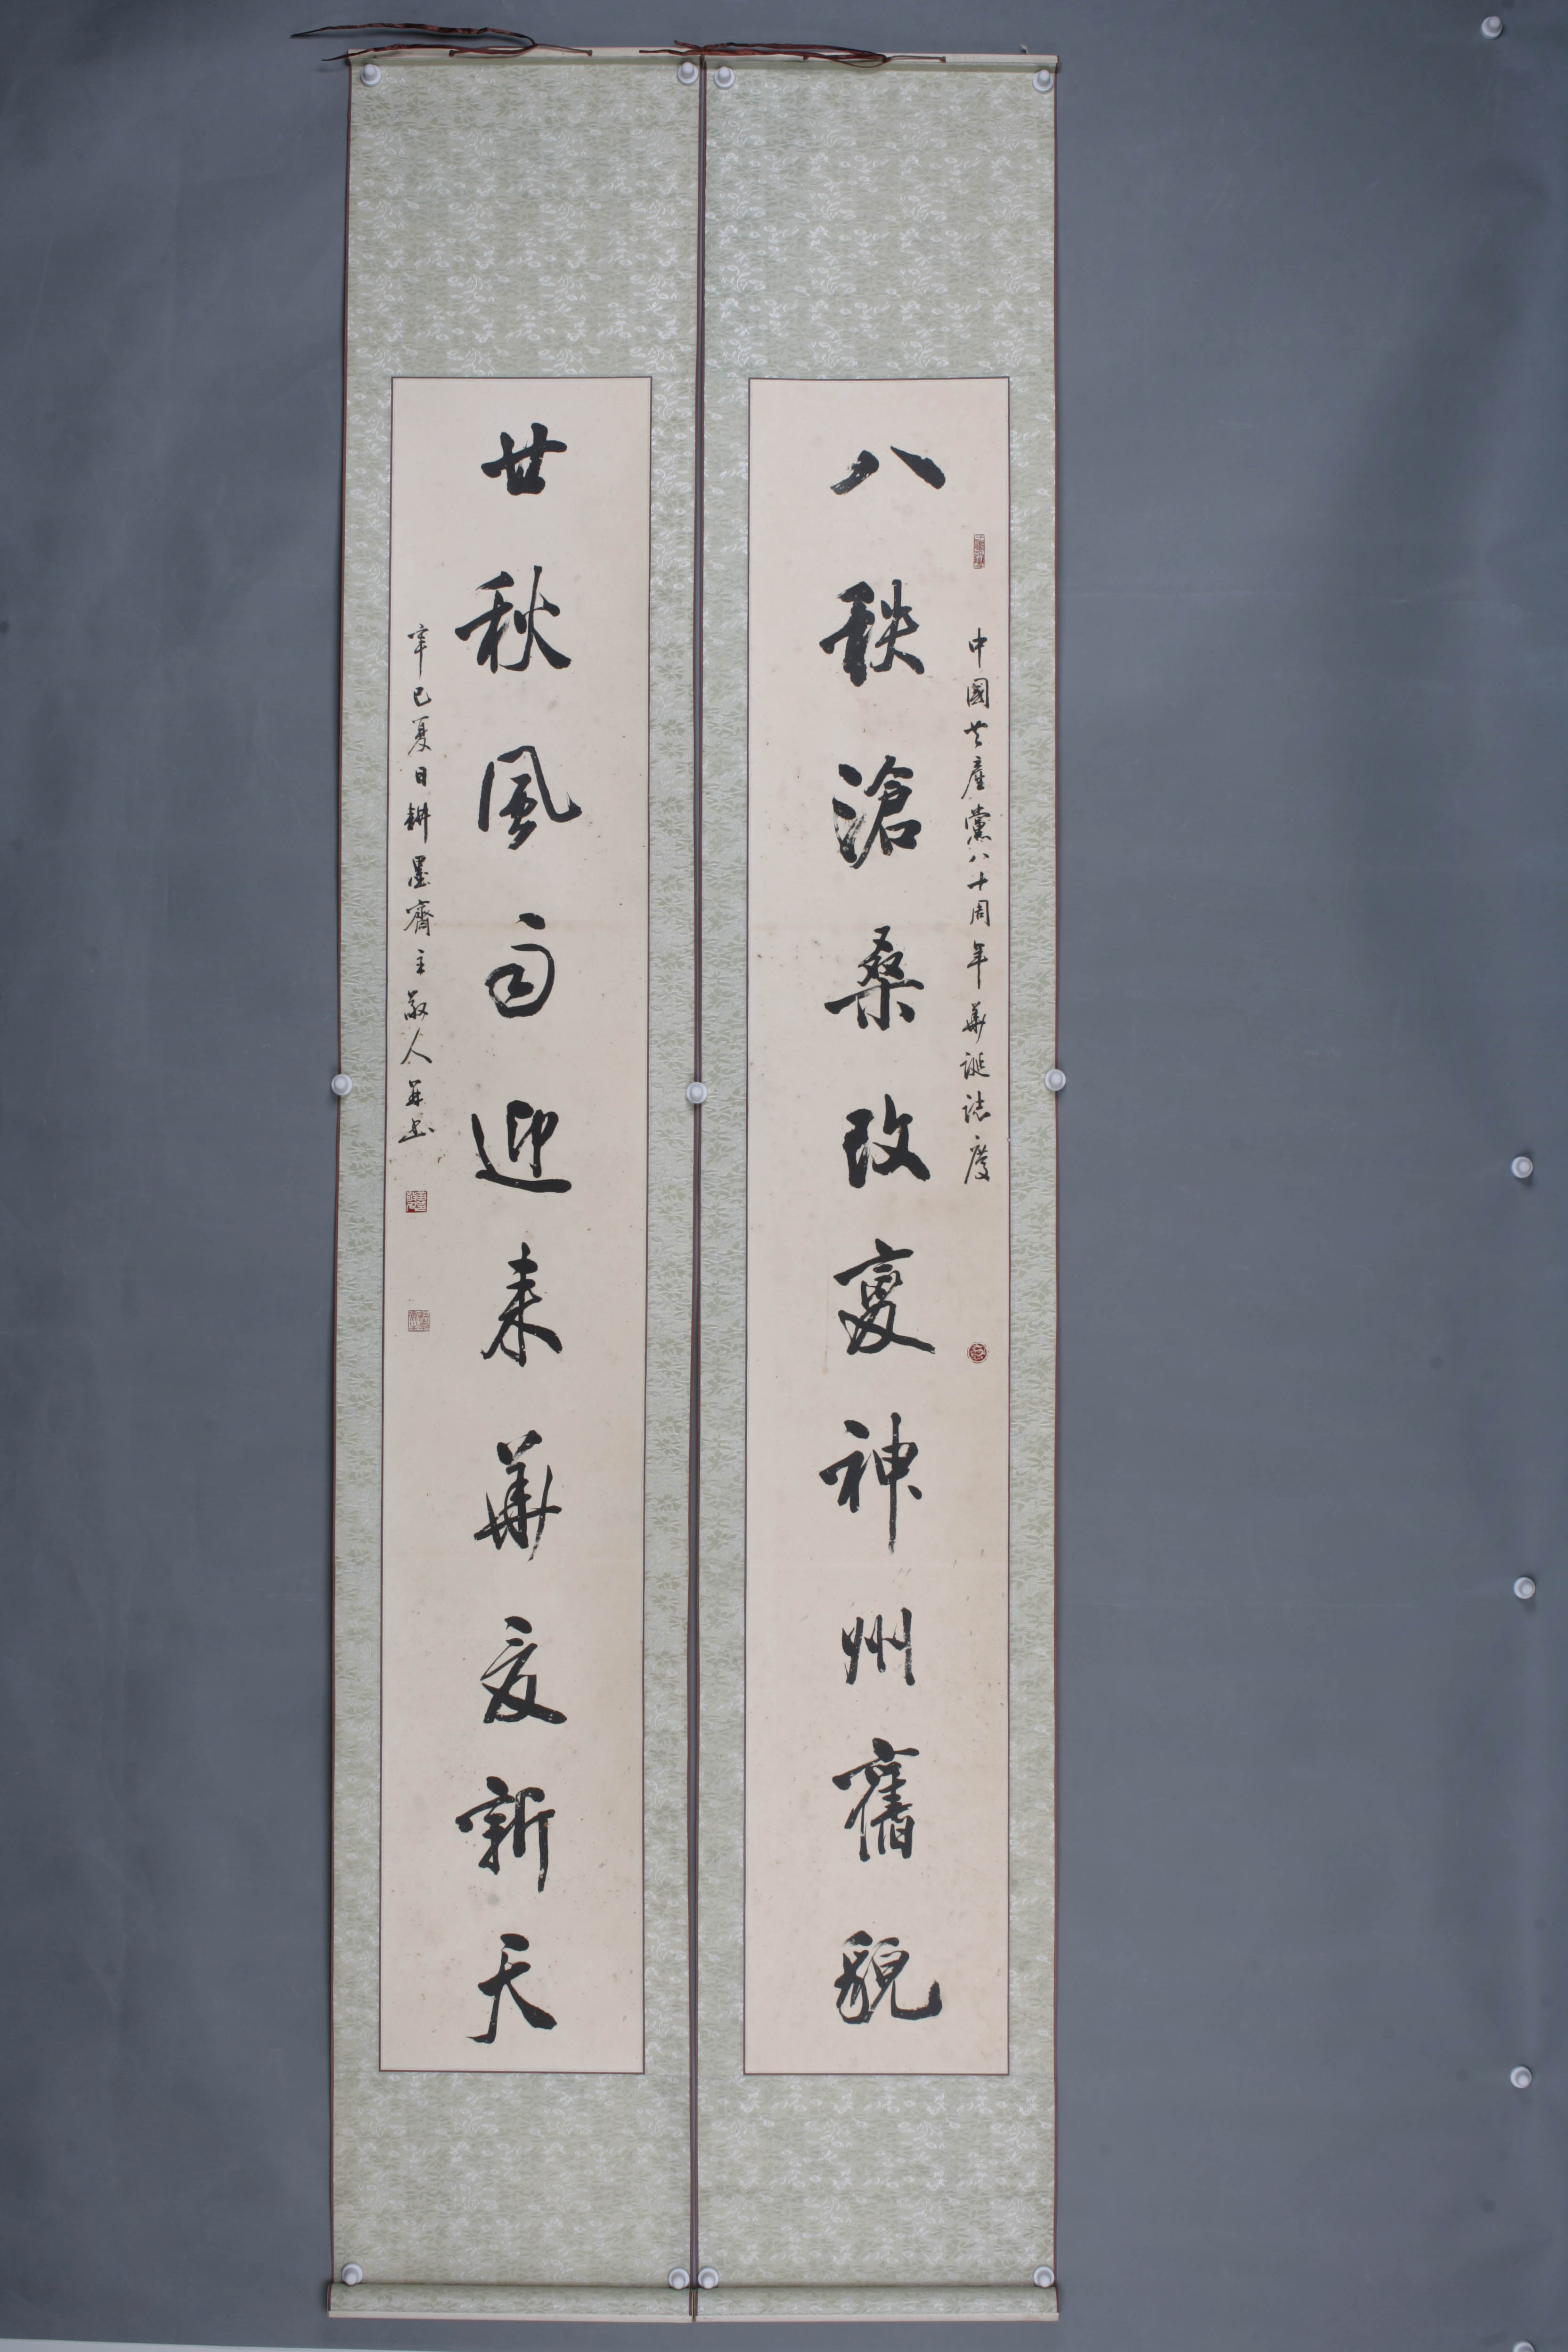 中國共產黨八十周年華誕誌慶
八秩滄桑改變神州舊貌
廿秋風雨迎來華夏新天
辛巳夏日耕墨齋主敬人并書